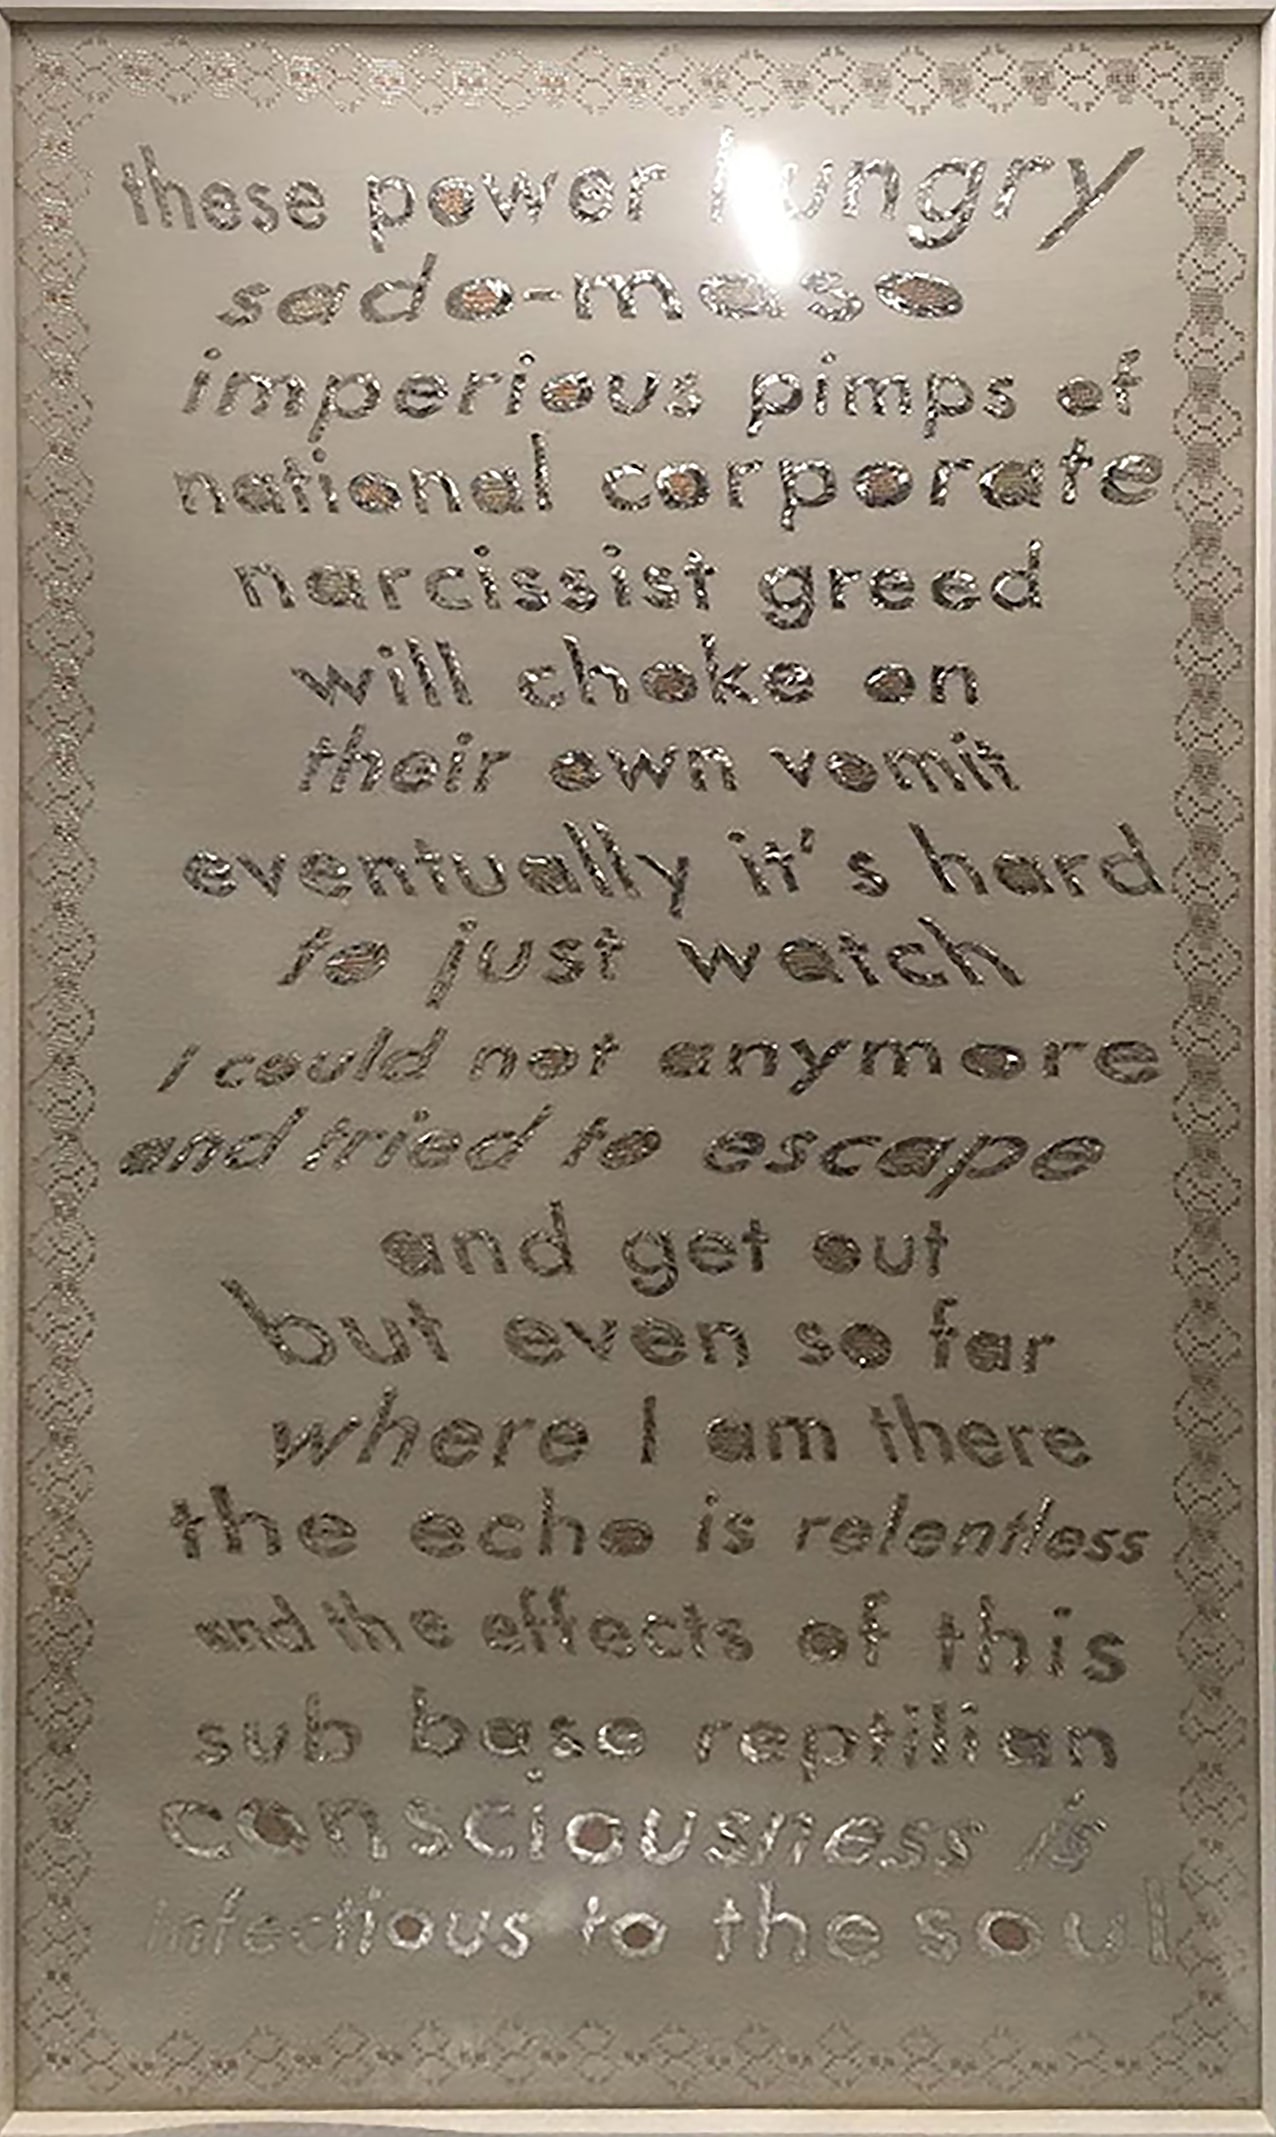 these power hungry
sado-maso
imperious pimps of
national corporate
narcissist greed
will choke on
their own vomit
eventually it's hard
to just watch
I could not anymore
and tried to escape
and get out
but even so far
where I am there
the echo is relentless
and the effects of this
sub base reptilian
consciousness is
infectious to the soul